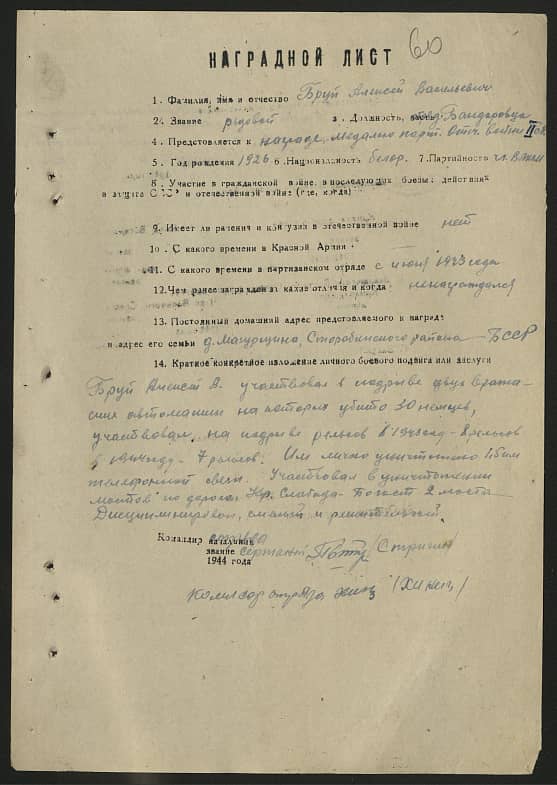 НАГРАДНОЙ ЛИСТ 60
1. Фамилия, имя и отчество Бруй Алексей Васильевич
2. Звание рядовой 3. Должность, часть Бандаровца
4. Представляется к награде, медалью парт. Отеч. войны II
5. Год рождения 1926 6. Национальность белор. 7. Партийность чл. ВЛКСМ
8. Участие в гражданской войне, в последующих боевых действиях
в защите СССР и отечественной войне (где, когда)
9. Имеет ли ранения и контузии в отечественной войне нет
10. С какого времени в Красной Армии -
11. С какого времени в партизанском отряде с июня 1943 года
12. Чем ранее награжден за какие отличия и когда ненаграждался
13. Постоянный домашний адрес представляемого к награде
и адрес его семьи Старобинского района БССР
14. Краткое конкретное изложение личного боевого подвига или заслуги
Бруй Алексей В. участвовал в подрыве двух вражеских
автомашин на которых убито 30 немцев,
участвовал на подрыве рельсов в 1943 году - 8 рельсов
в 1944 году - 7 рельсов. Им лично уничтожено
телефонной связи. Участвовал в уничтожении
мостов по дороге Кр. Слобода - Погост 2 моста
Дисциплинирован, смелый и решительный.
Командир
звание сержант
1944 года
Комиссар отряда